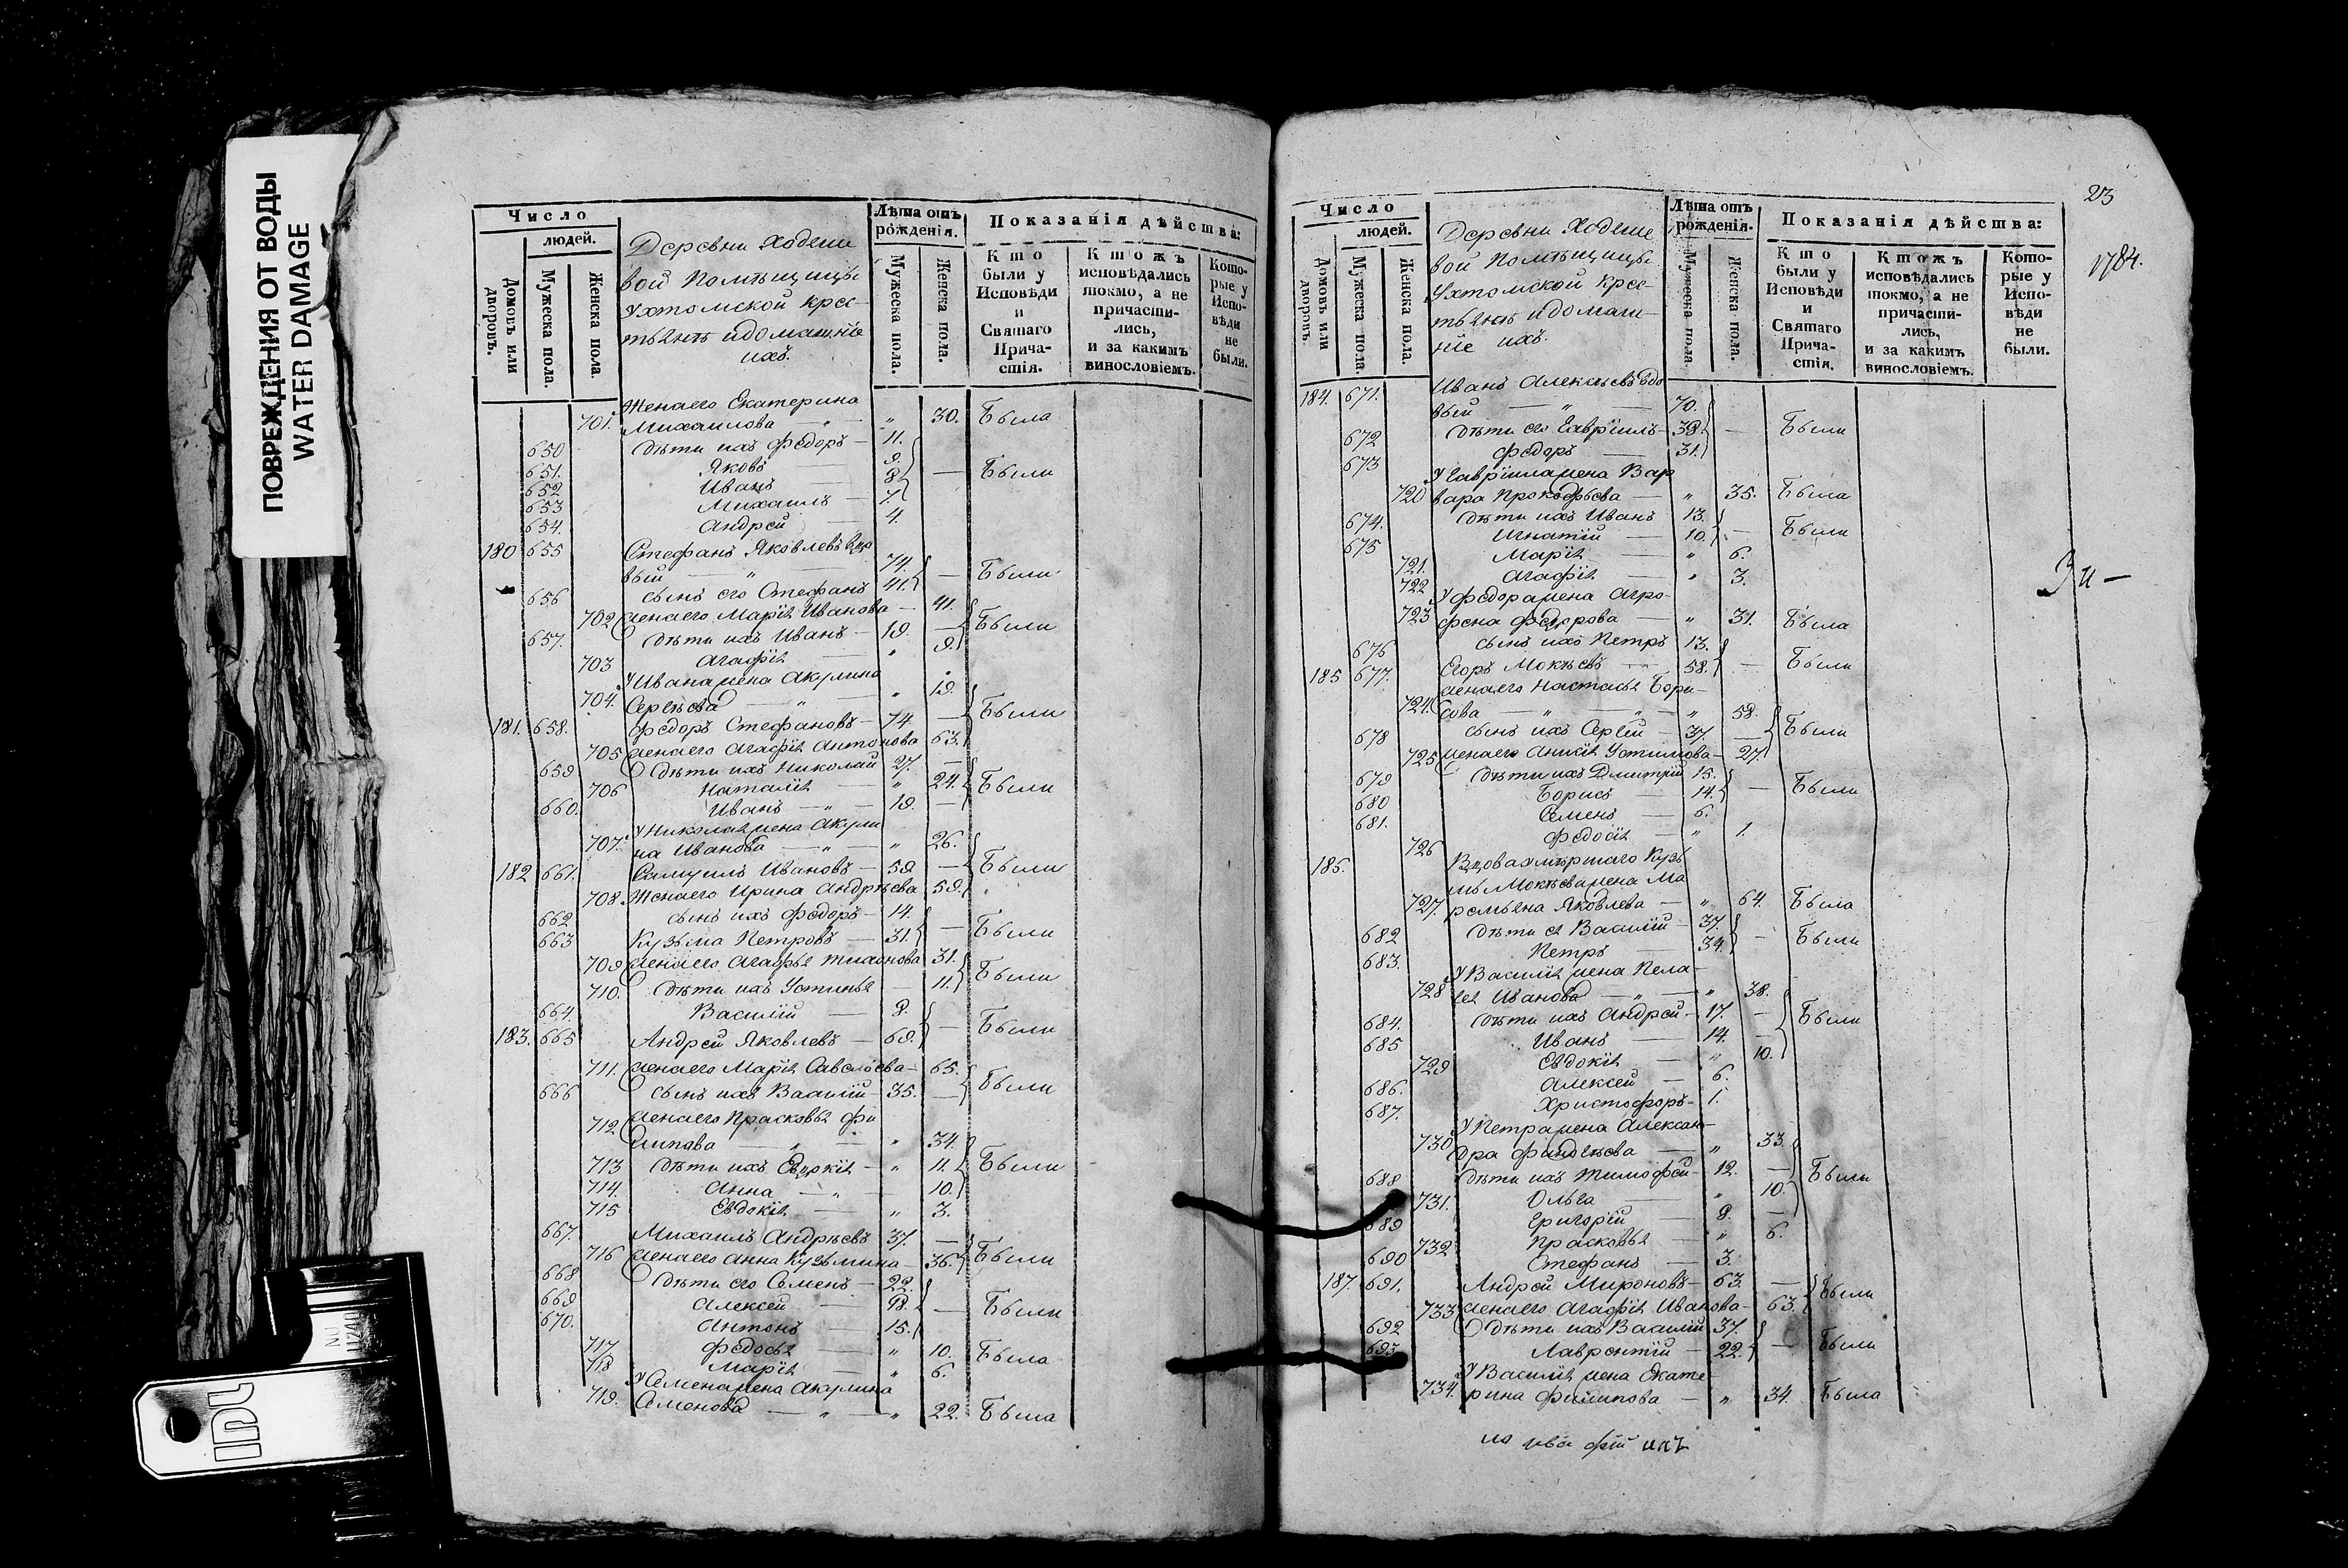 ПОВРЕЖДЕНИЯ ОТ ВОДЫ
WATER DAMAGE
Число
людей.
Домовъ или дворовъ.
Мужеска пола.
Женска пола.
Деревни Ходяши
вой Помѣщицы
Ухтомской крес
тьянъ идомашніе
ихъ.
Лѣта отъ рожденія.
Мужеска пола.
Женска пола.
Показанія дѣйства:
Кто были у Исповѣди и Святаго Причастія.
Ктожъ исповѣдались токмо, а не причастились, и за какимъ винословіемъ.
Которые у Исповѣди не были.
Женаего Екатерина
701. Михаилова — „ 30. Была
650 дѣти ихъ Федоръ — 11.
651. Яковъ 9
652 Иванъ 8 — Были
653 Михаилъ — 7.
654. Андрей 4.
180 655 Стефанъ Яковлевъ вдо
вый — „ — 74. — Были
656 сынъ его Стефанъ 41.
702 женаего Марія Иванова — 41.
657. дѣти ихъ Иванъ — 19. — Были
703 Агафія „ 9.
УИвана жена Акулина
704. Сергѣева — „ „ 19.
181. 658. Федоръ Стефановъ — 74. — Были
705 женаего Агафія Антонова 63.
659 дѣти ихъ Николай 27. —
706 Наталія — „ 24. Были
660. Иванъ — „ — 19. —
УНиколая жена Акули
707. на Иванова — „ — „ 26.
182 661. Самуилъ Ивановъ — 59 — Были
708 Женаего Ирина Андрѣева 59.
662 сынъ ихъ Федоръ — 14.
663 Кузьма Петровъ — 31. — Были
709 женаего Агафья 31.
710. дѣти ихъ Устинья — 11. Были
664. Василій — 8.
183. 665 Андрей Яковлевъ — 69. — Были
711. женаего Марія Савельева — 65.
666 сынъ ихъ Василій — 35. — Были
женаего Прасковья Фи
712 липова — „ — „ 34.
713 дѣти ихъ Евдокія — „ 11. Были
714. Анна — „ — 10.
715 Евдокія — „ 3.
667. Михаилъ Андрѣевъ 37. —
716 женаего Анна Кузьмина — 36. Были
668 дѣти его Семенъ — 22.
669 Алексей — 18. — Были
670. Антонъ — 15.
717 Федосья — „ 10. Была
718 Марія — „ 6.
УСемена жена Акулина
719. Семенова — „ — „ 22. Была
23
1784.
Число
людей.
Домовъ или дворовъ.
Мужеска пола.
Женска пола.
Деревни Ходяше
вой Помѣщицы
Ухтомской крес-
тьянъ идомаш-
ніе ихъ.
Лѣта отъ рожденія.
Мужеска пола
Женска пола.
Показанія дѣйства:
Кто были у Исповѣди и Святаго Причастія.
Ктожъ исповѣдались токмо, а не причастились, и за какимъ винословіемъ.
Которые у Исповѣди не были.
184. 671. Иванъ Алексѣевъ вдо
вый — „ — 70.
672 дѣти его Гавріилъ — 38. — Были
673 Федоръ — 31.
УГавріила жена Вар
720 вара Прокофьева — „ 35. Была
674. дѣти ихъ Иванъ 13.
675 Игнатій — 10. — Были
721. Марія — „ 6.
722 Агафія — „ 3.
УФедора жена Агро-
723 фена Федорова — „ 31. Была
676 сынъ ихъ Петръ 13.
185 677. Егоръ Мокѣевъ — 58. — Были
женаего Настасья Бори-
724. сова — „ — „ — „ 58.
678 сынъ ихъ Сергѣй — 37. — Были
725 женаего Анисія Устинова — 27.
679 дѣти ихъ Дмитрій 15.
680 Борисъ — 14. — Были
681. Семенъ — 6.
726 Федосія — „ 1.
186. Вдова умѣршаго Кузь
мы Мокѣева жена Ма
727. ремьяна Яковлева — „ 64. Была
682 дѣти ея Василій — 37.
683. Петръ — 34. — Были
УВасилія жена Пела-
728 гея Иванова — „ — „ 38.
684. дѣти ихъ Андрей — 17. — Были
685 Иванъ — 14. —
729 Евдокія — „ 10.
686. Алексей — 6.
687. Христофоръ — 1.
УПетра жена Алексан-
730 дра — „ 33.
688 дѣти ихъ Тимофей — 12. — Были
731. Ольга — „ 10.
689 Григорій — 8. —
732 Прасковья — „ 6.
690 Стефанъ — 3.
187. 691. Андрей Мироновъ — 63. — Были
733 женаего Агафія Иванова — 63.
692 дѣти ихъ Василій 37.
693 Лаврентій — 22. — Были
УВасилія жена Екате
734. рина Филипова — „ 34. Была